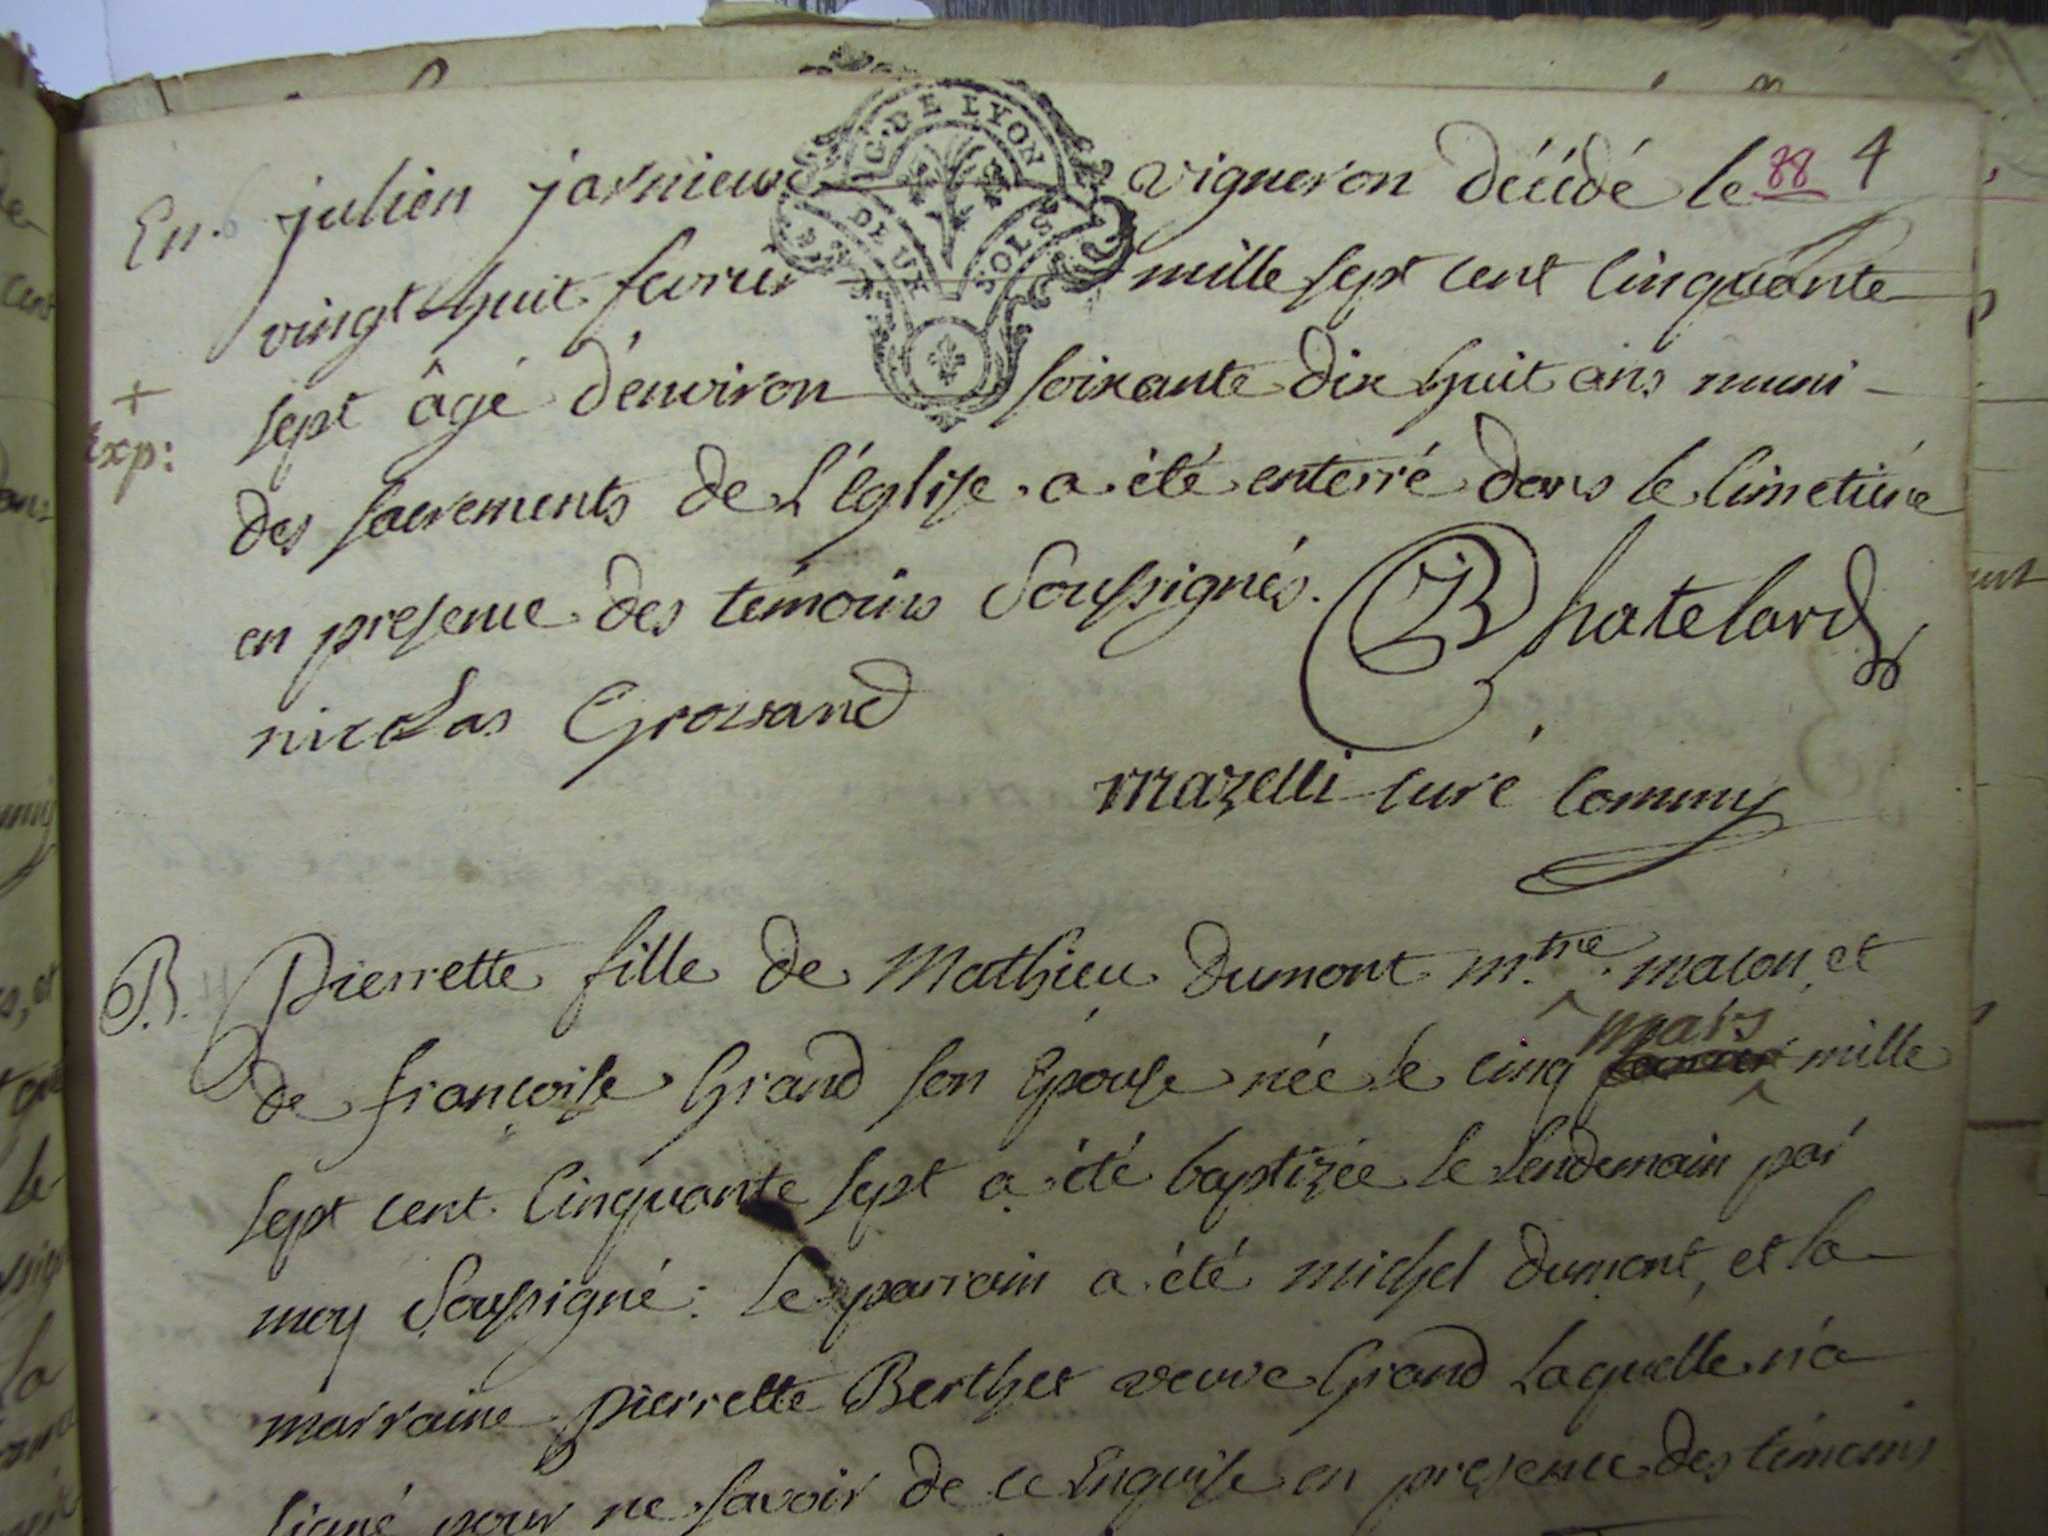 G. DE LYON
DEUX SOLS
88 4
En. julien jarnieux vigneron décédé le
vingt huit fevrier mille sept cent cinquante
sept âgé d'environ soixante dix huit ans muni
+
Exp:
des sacrements de L'église a été enterré dans le cimetiére
en presence des témoins Soussignés. Chatelard
nicolas Groisand
mazelli curé Commis
B. Pierrette fille de Mathieu Dumont m.tre macon, et
de françoise Grand son Epouse née le cinq mars mille
sept cent cinquante sept a été baptizée le lendemain par
moy Soussigné: le parrain a été michel dumont, et la
marraine pierrette Berthet veuve Grand Laquelle n'a
signé pour ne savoir de ce Enquise en presence des témoins